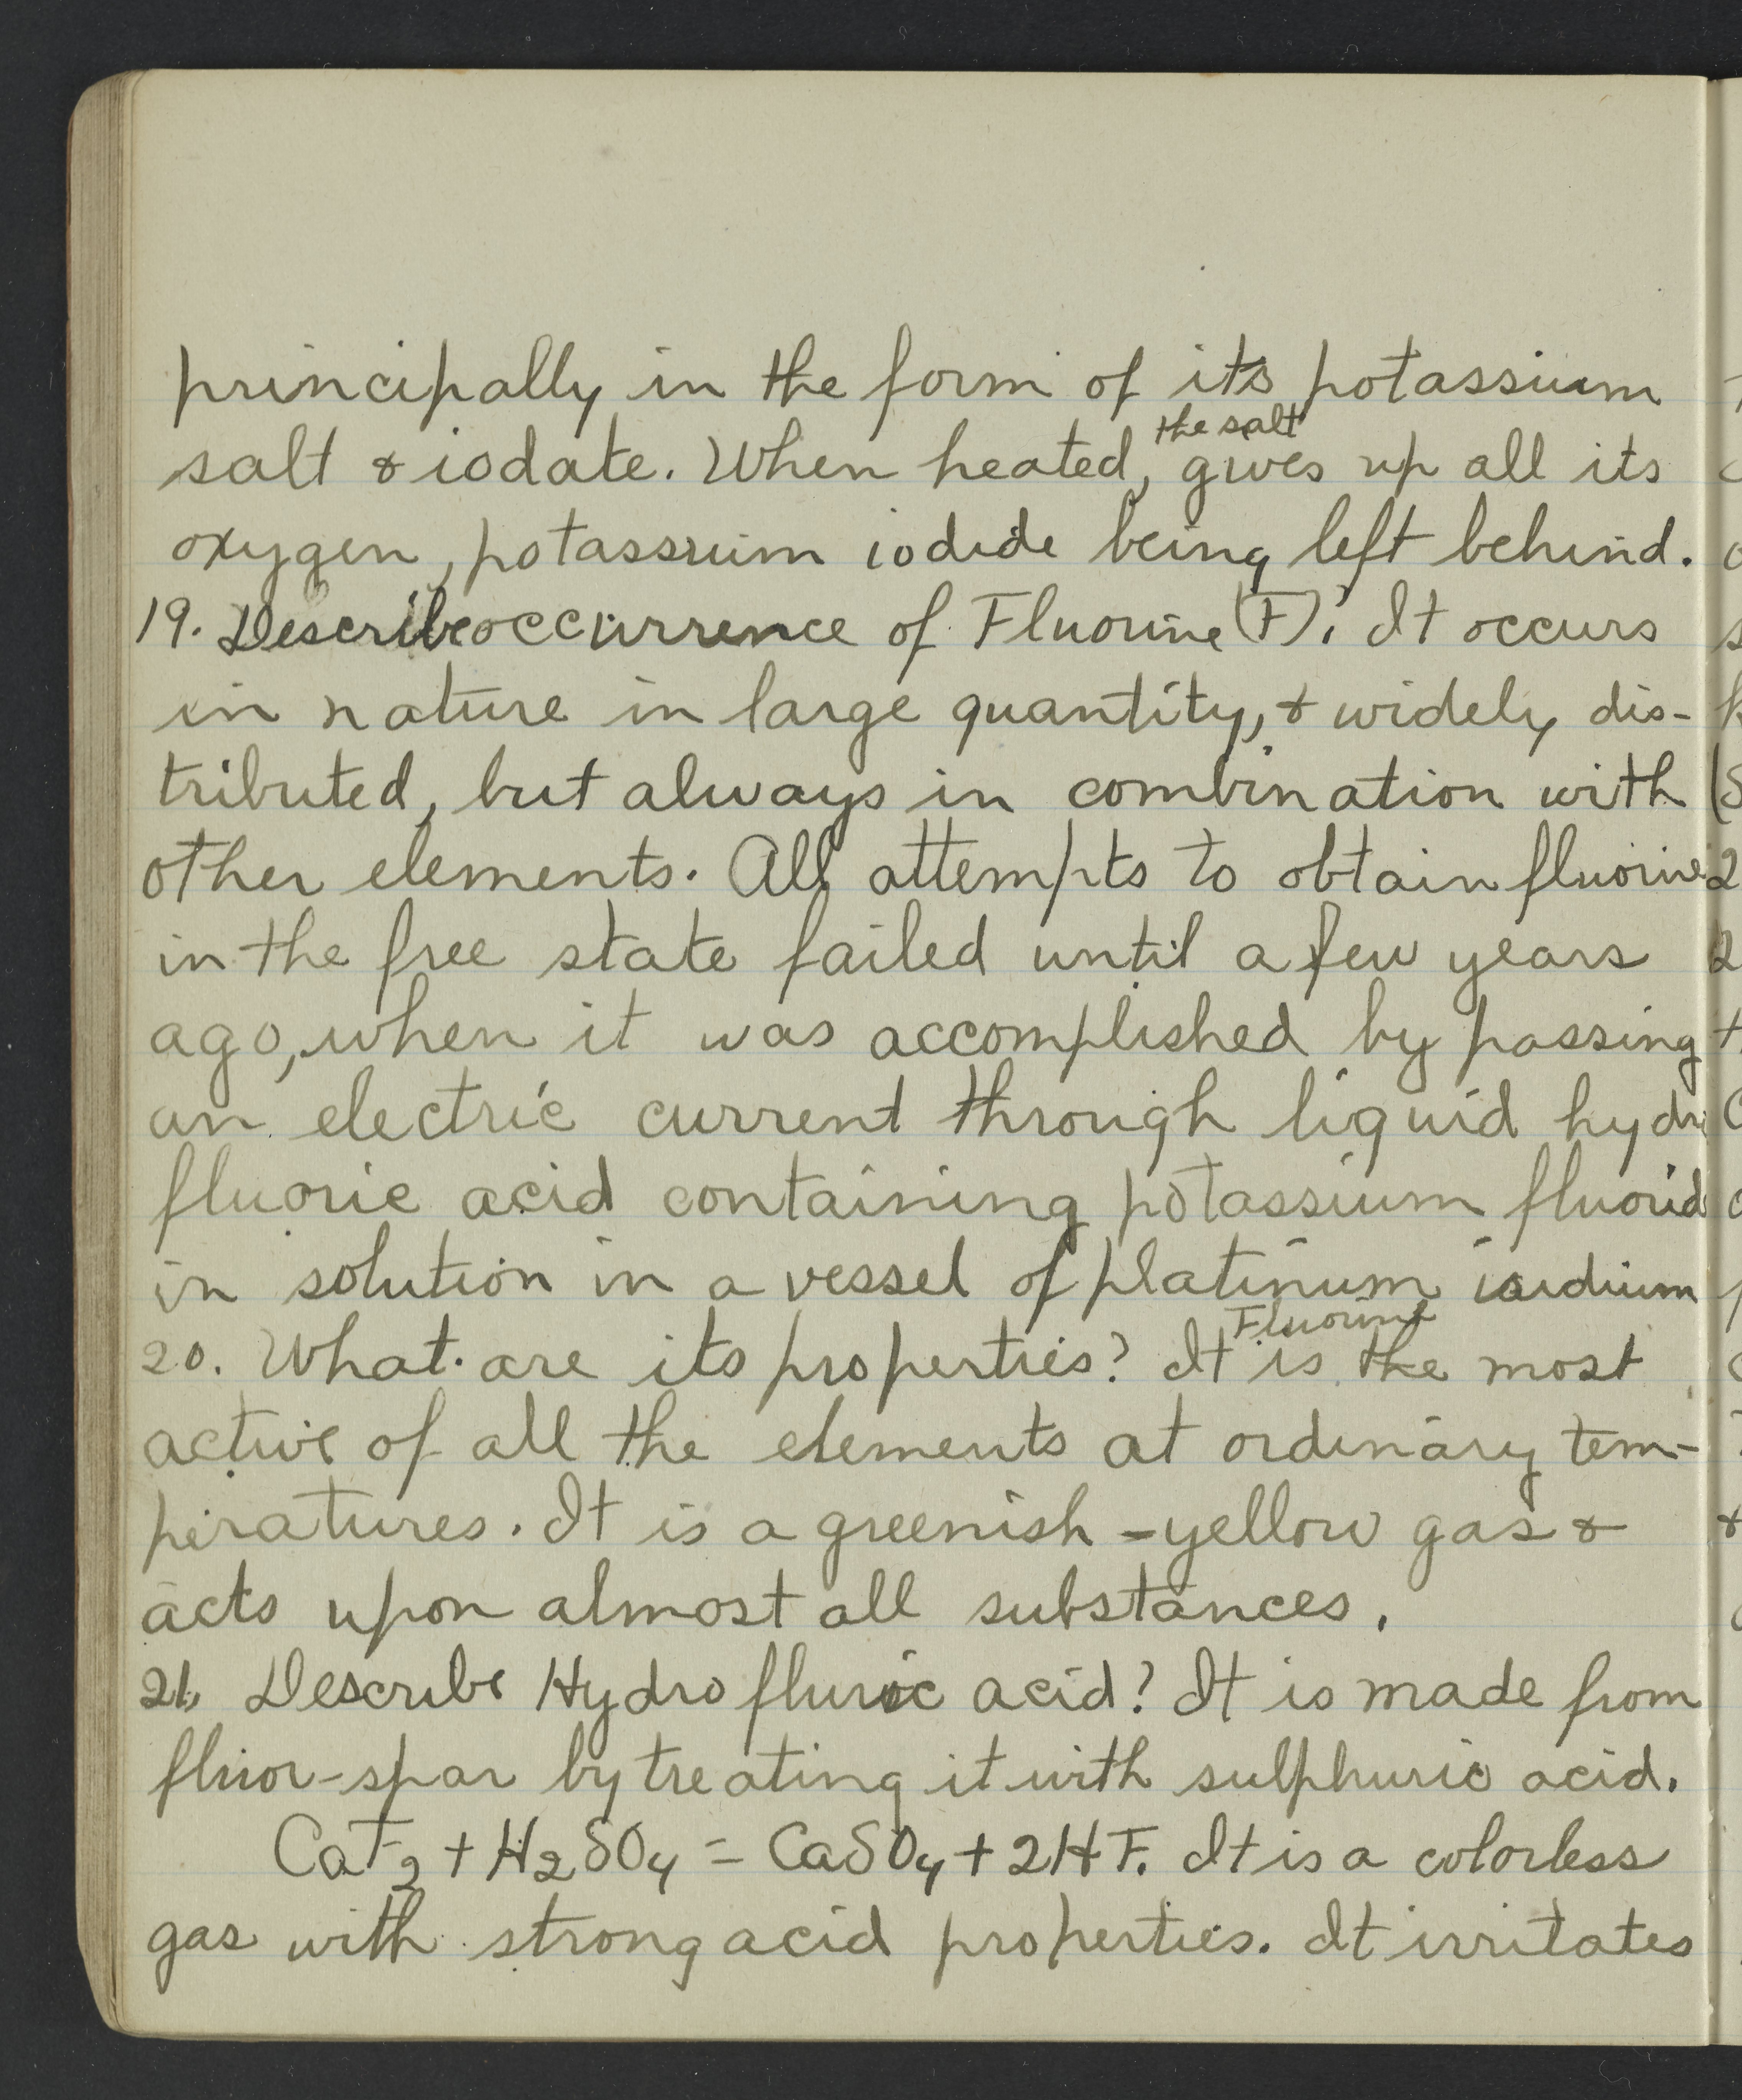 principally in the form of its potassium
the salt
salt & iodate. When heated, gives up all its
oxygen, potassium iodide being left behind.
19. Describe occurrence of Fluorine (F). It occurs
in nature in large quantity, & widely dis-
tributed, but always in combination with
other elements. All attempts to obtain fluorine
in the free state failed until a few years
ago, when it was accomplished by passing
an electric current through liquid hydro
fluoric acid containing potassium fluorid
in solution in a vessel of platinum
Fluorine
20. What are its properties? It is the most
active of all the elements at ordinary tem-
peratures. It is a greenish-yellow gas &
acts upon almost all substances.
21. Describe Hydro fluric acid? It is made from
fluor-spar by treating it with sulphuric acid.
CaF2 + H2SO4 = CaSO4 + 2HF. It is a colorless
gas with strong acid properties. It irritates